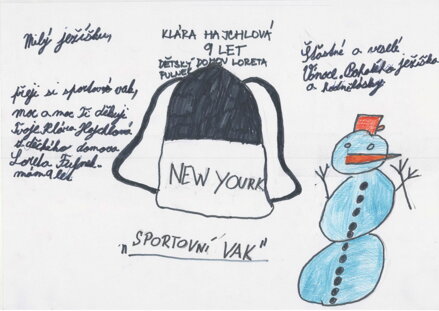 Milý ježíšku,
přeji si sportovní vak,
moc a moc Ti děkuji
Tvoje Klára Hajchlová
z dětského domova
Loreta Fulnek.
mám 9 let
KLÁRA HAJCHLOVÁ
9 LET
DĚTSKÝ DOMOV LORETA
FULNEK
NEW YOURK
"SPORTOVNÍ VAK"
Šťastné a veselé
Vánoce. Bohatého ježíška
a hodně lásky